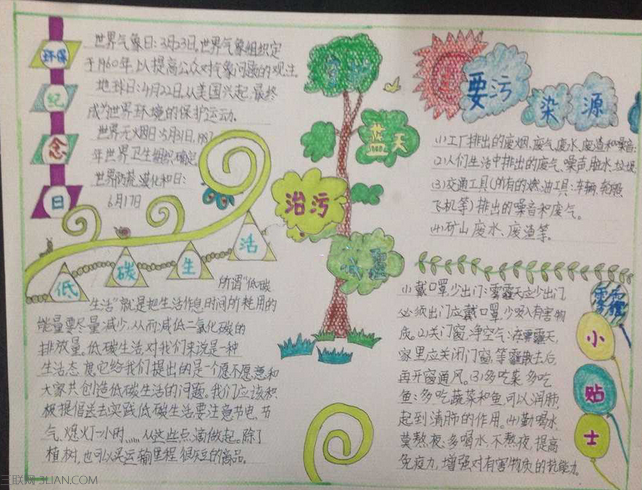 环保
纪
念
日
世界气象日:3月23日,世界气象组织定
于1960年,以提高公众对气象问题的观注。
地球日:4月22日从美国兴起,最终
成为世界环境的保护运动。
世界无烟日:5月31日,1987
年世界卫生组织确定
世界防荒漠化和日:
6月17日
低
碳
生
活
所谓“低碳
生活”就是把生活作息时间所耗用的
能量要尽量减少,从而减低二氧化碳的
排放量。低碳生活,对我们来说是一种
生活态度,它给我们提出的是个愿不愿意和
大家共创造低碳生活的问题。我们应该积
极提倡去实践低碳生活,要注意节电、节
气、熄灯一小时……从这些点滴做起。除了
植树,也可以买运输里程很短的商品。
蓝天
治污
要污
染
源
(1)工厂排出的废烟、废气、废水、废渣和噪音;
(2)人们生活中排出的废气、噪声、脏水、垃圾
(3)交通工具(所有的燃油工具:车辆、轮船、
飞机等)排出的噪音和废气。
(4)矿山废水、废渣等。
小
贴
士
(1)戴口罩,少出门:雾霾天少出门
必须出门应戴口罩,少吸入有害物
质。(2)关门窗,净空气:在雾霾天,
家里应关闭门窗,等雾散去后
再开窗通风。(3)多吃菜,多吃
鱼:多吃蔬菜和鱼可以润肺,
起到清肺的作用。(4)勤喝水,
莫熬夜:多喝水,不熬夜,提高
免疫力,增强对有害物质的抗能力。
三联网 3LIAN.COM